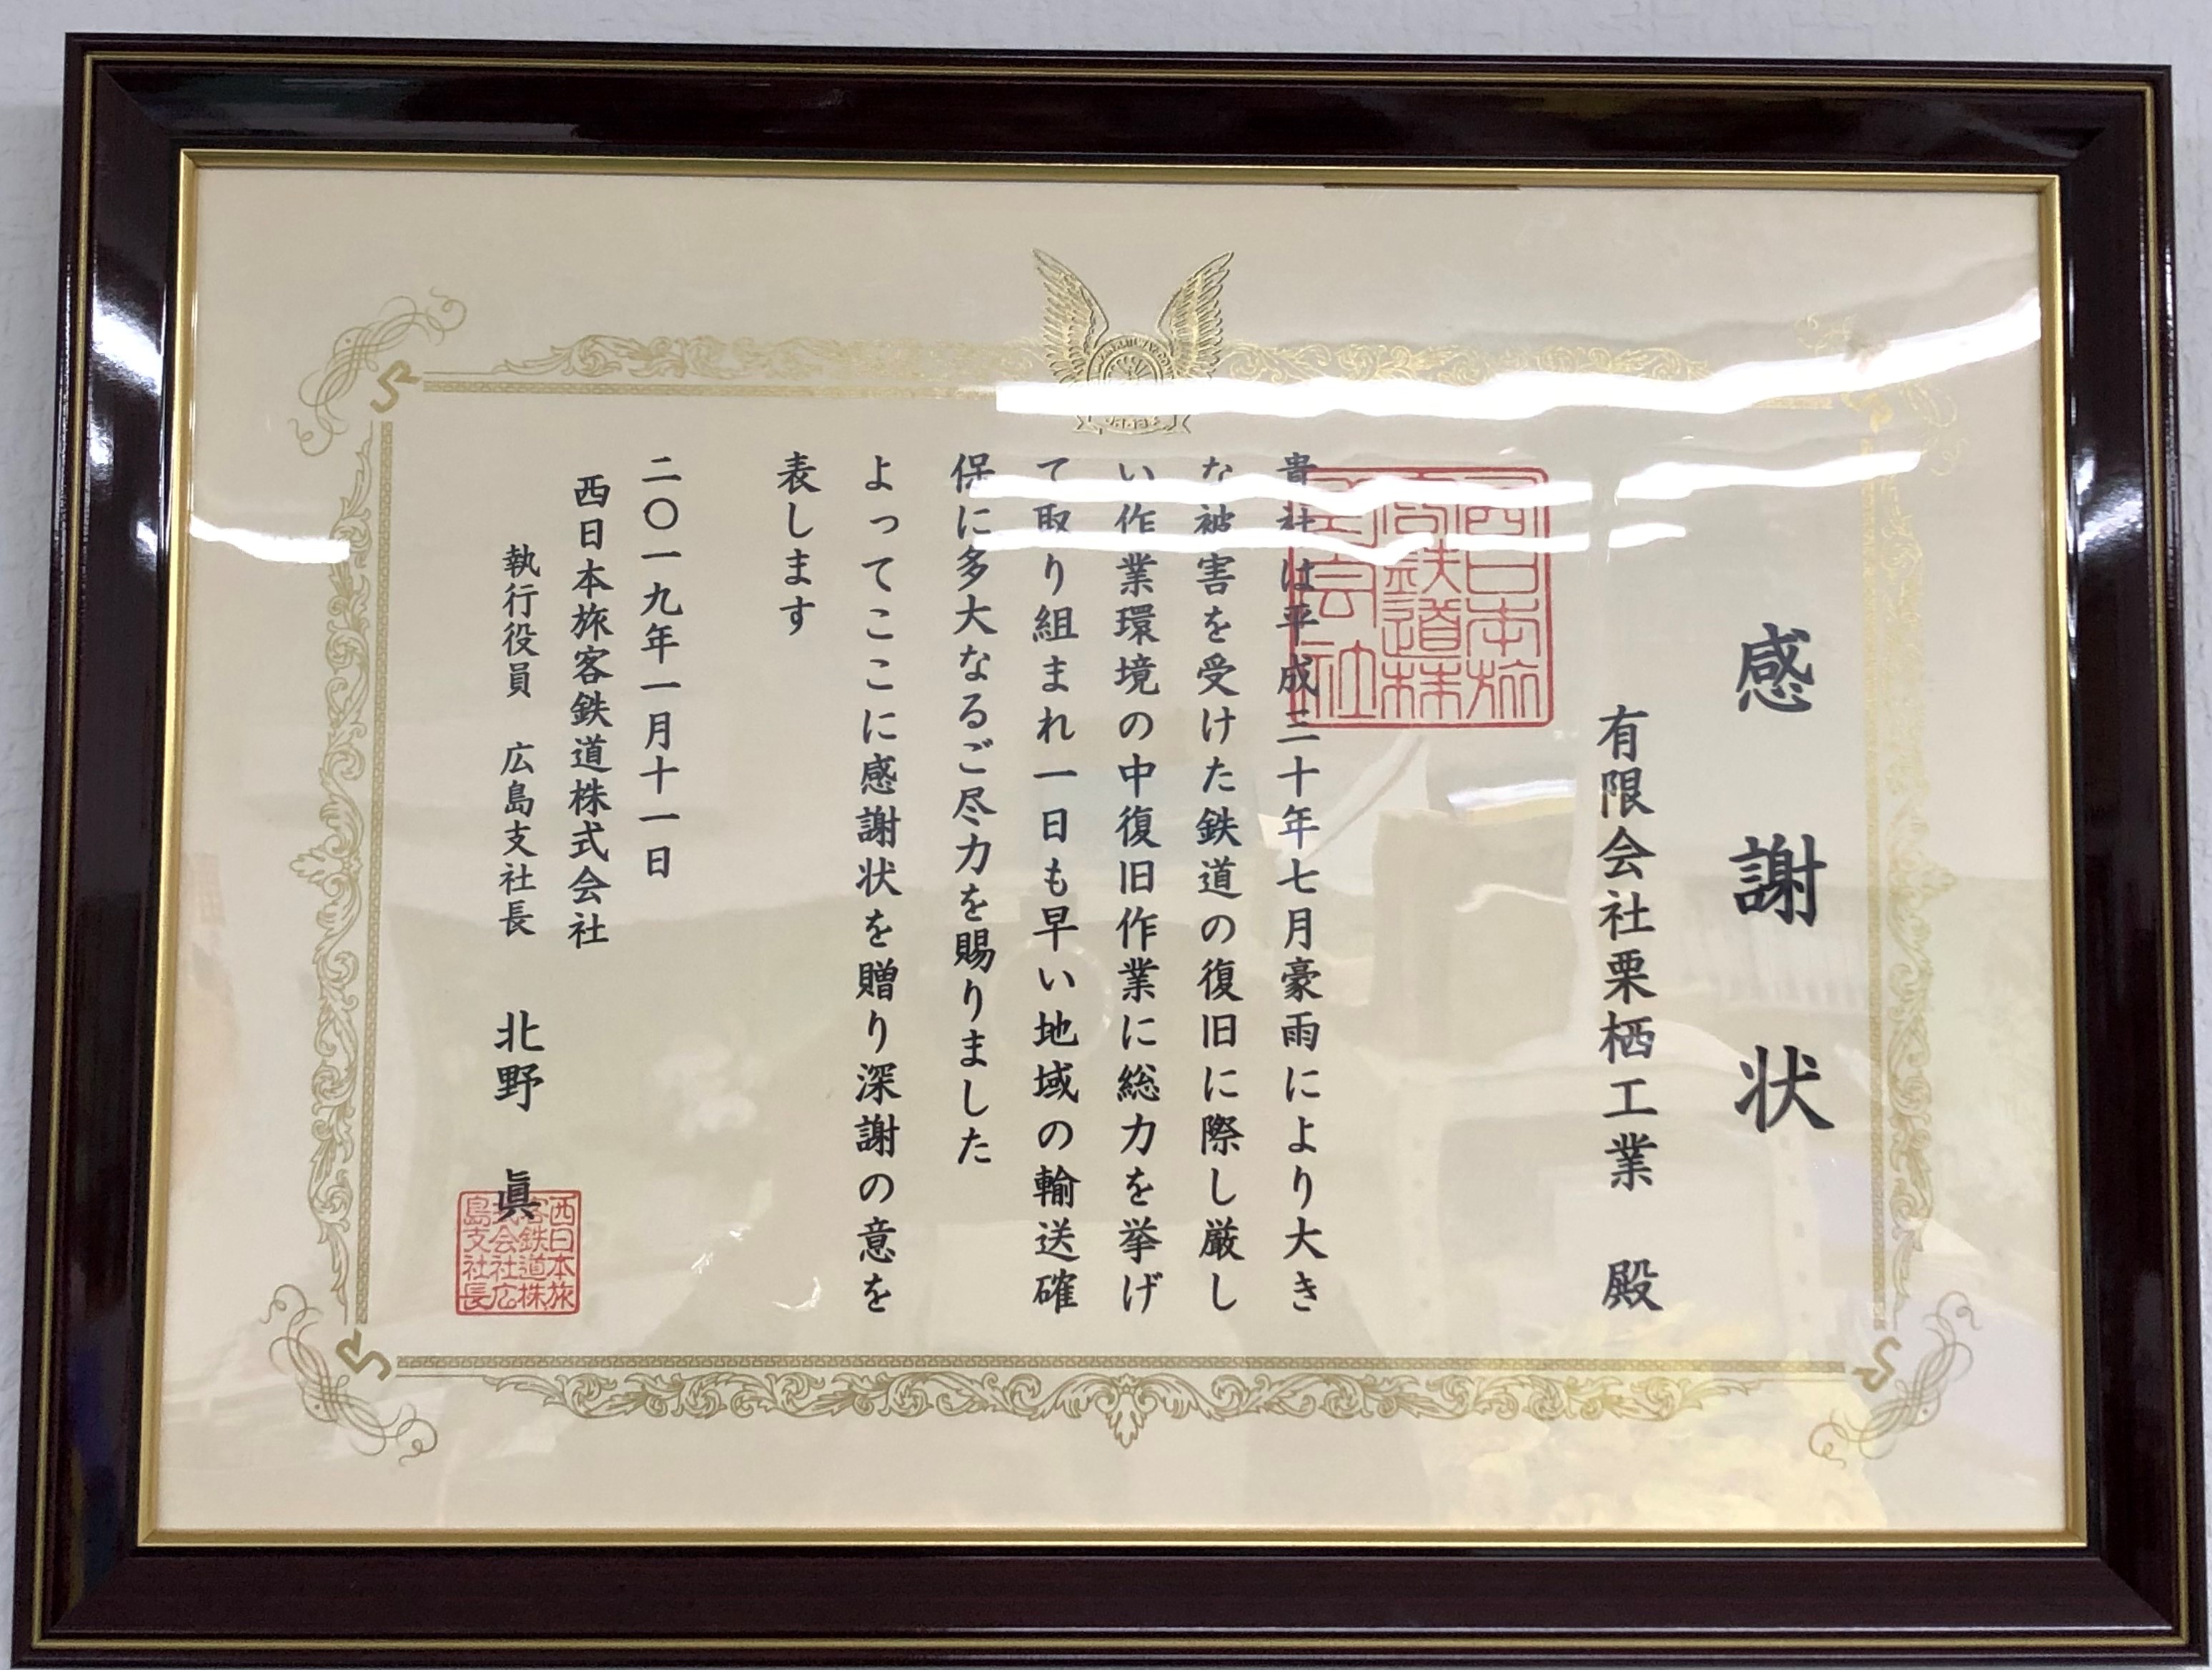 感謝状
有限会社栗栖工業 殿
貴社は平成三十年七月豪雨により大き
な被害を受けた鉄道の復旧に際し厳し
い作業環境の中復旧作業に総力を挙げ
て取り組まれ一日も早い地域の輸送確
保に多大なるご尽力を賜りました
よってここに感謝状を贈り深謝の意を
表します
二〇一九年一月十一日
西日本旅客鉄道株式会社
執行役員 広島支社長 北野 眞
西日本旅
客鉄道株
式会社広
島支社長
西日本旅
客鉄道株
式会社